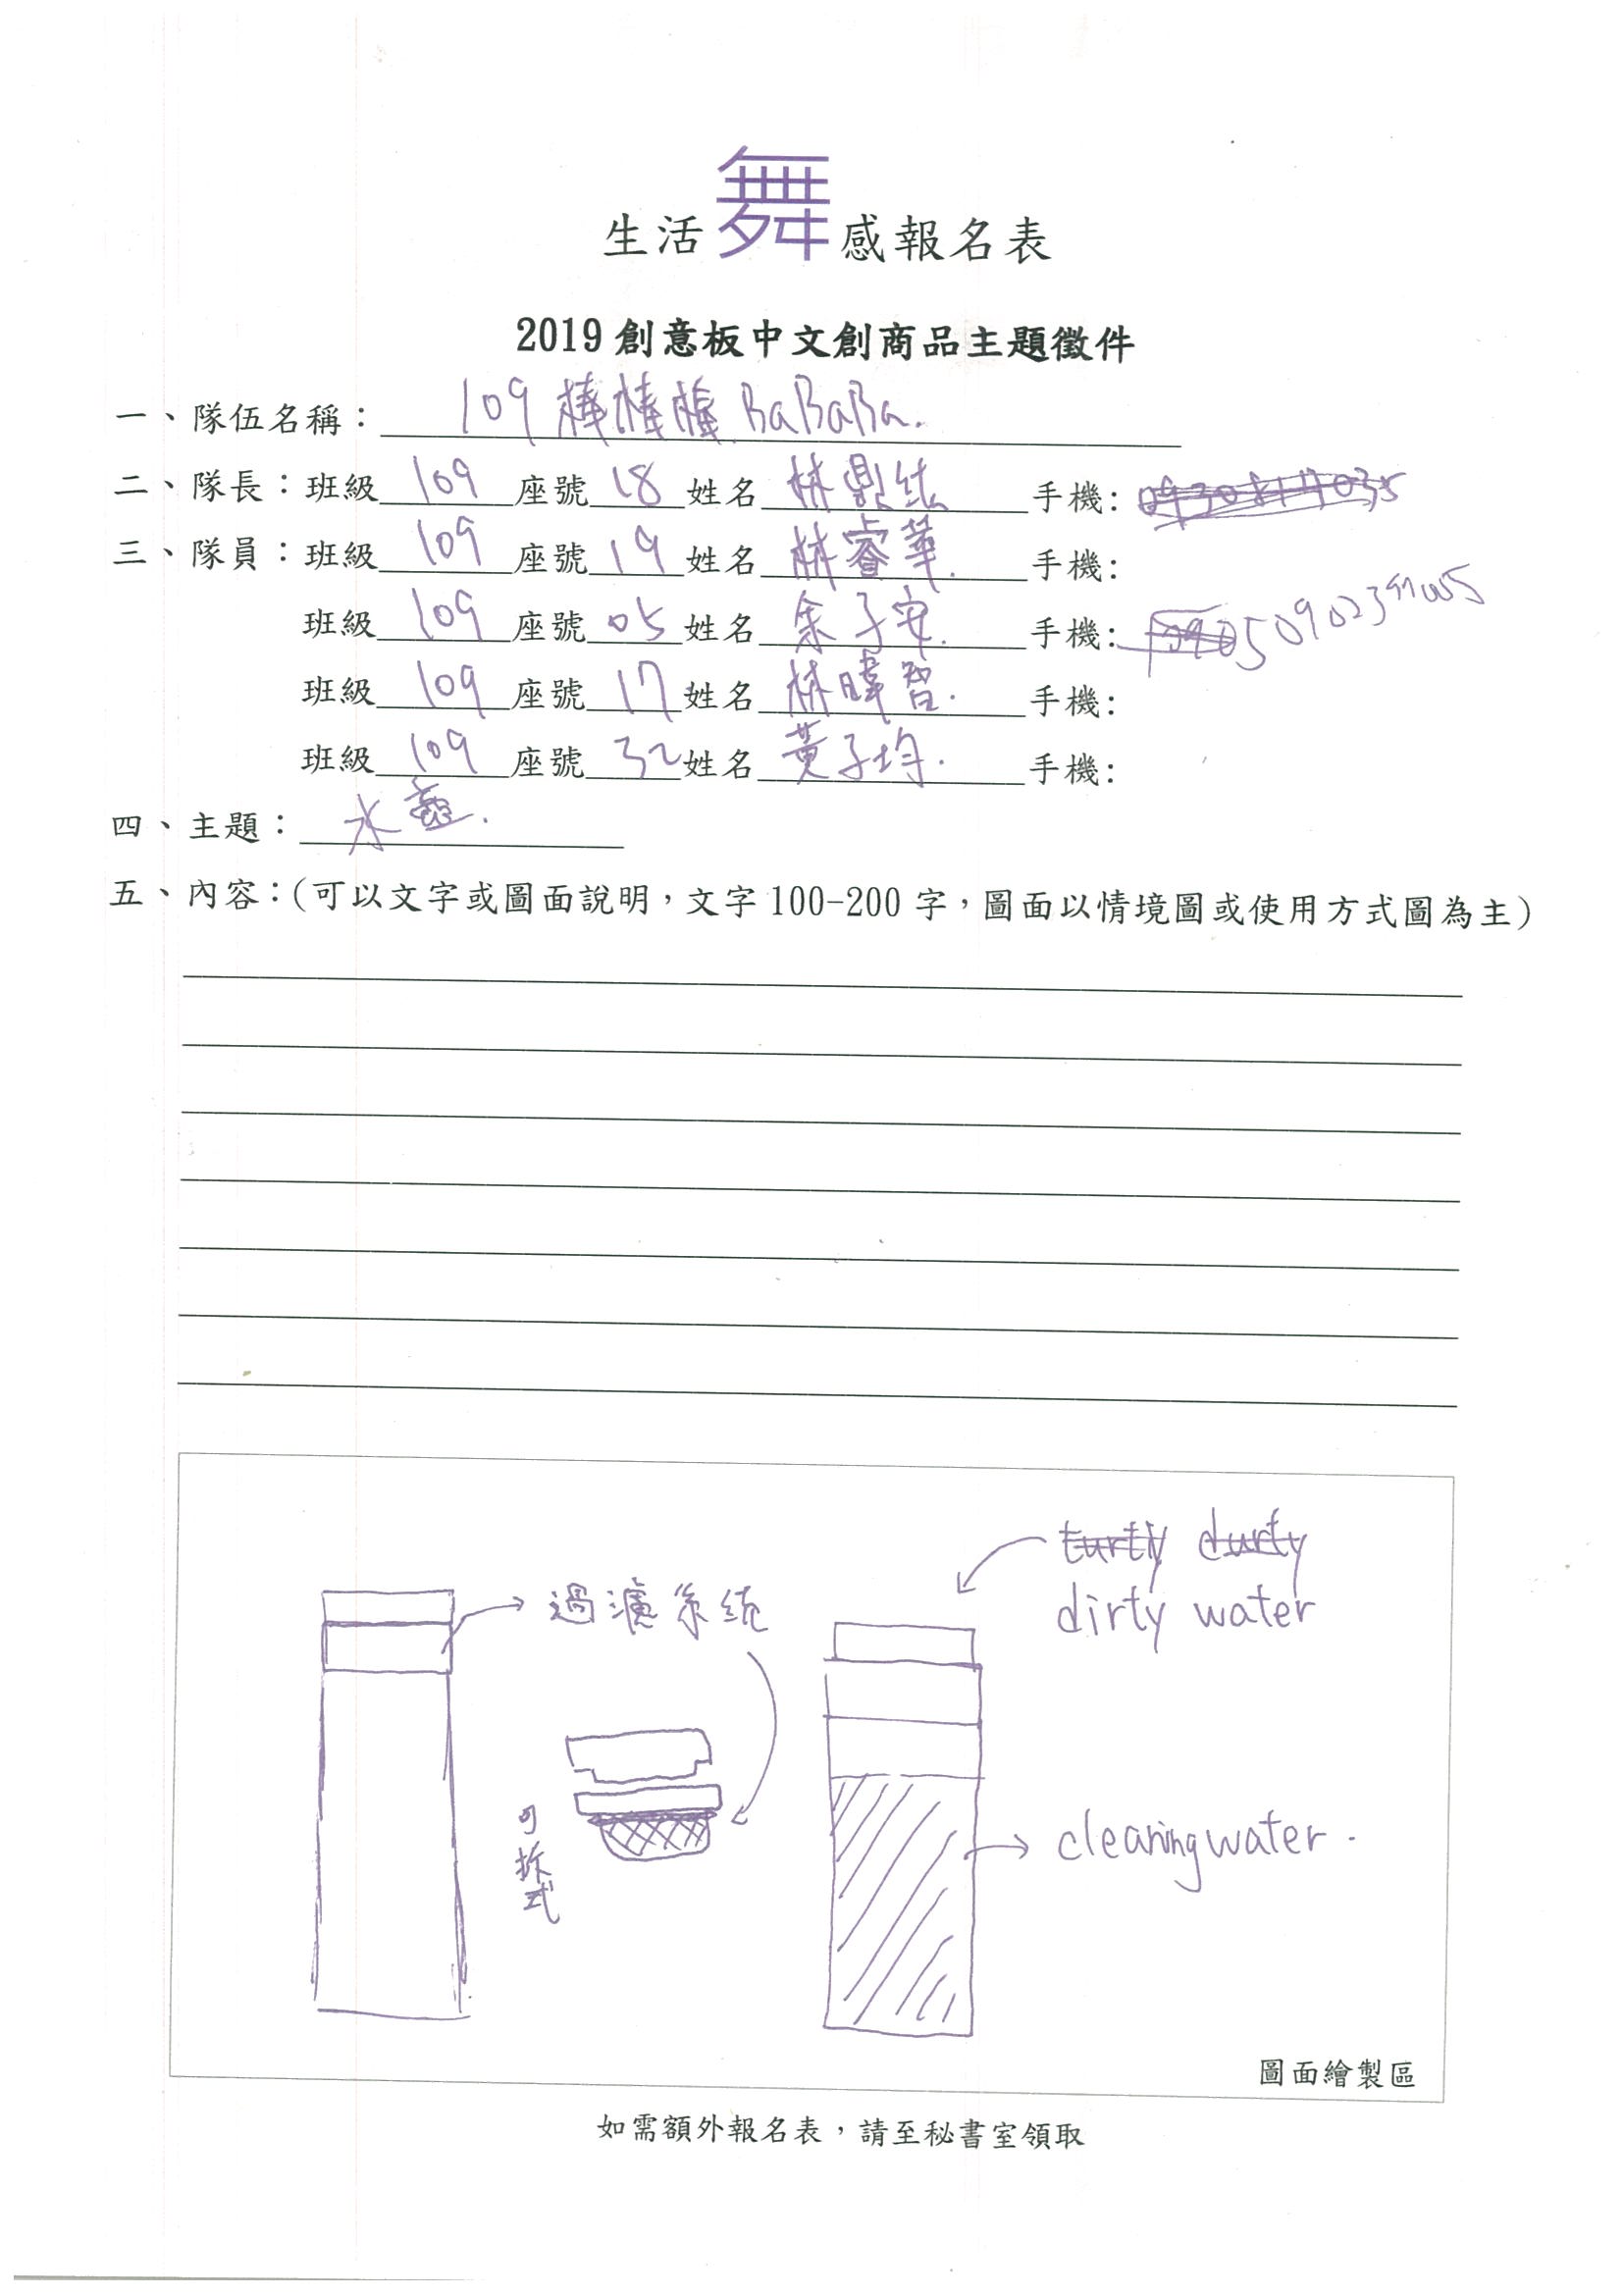 生活舞感報名表
2019創意板中文創商品主題徵件
一、隊伍名稱：109 棒棒棒 BaBaBa.
二、隊長：班級 109 座號 18 姓名 林鼎紘 手機：
三、隊員：班級 109 座號 19 姓名 林睿華. 手機：
班級 109 座號 05 姓名 余子安. 手機：
班級 109 座號 17 姓名 林暐智. 手機：
班級 109 座號 32 姓名 黃子均. 手機：
四、主題：水壺.
五、內容：(可以文字或圖面說明，文字100-200字，圖面以情境圖或使用方式圖為主)
turty durty
dirty water
過濾系統
可拆式
cleaning water.
圖面繪製區
如需額外報名表，請至秘書室領取